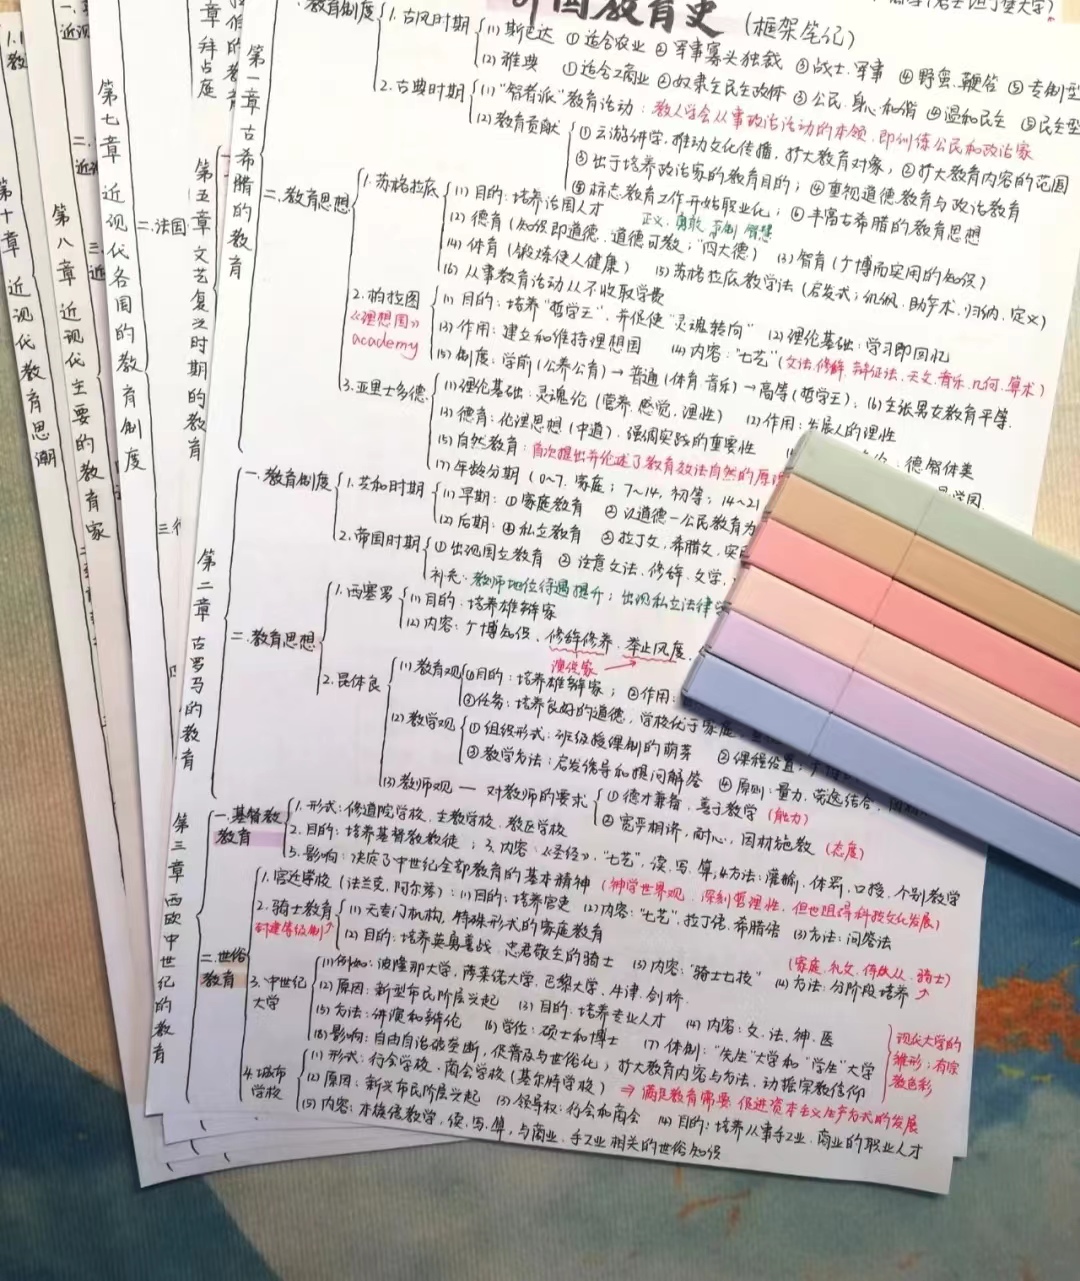 外国教育史 (框架笔记)
第一章 古希腊的教育
一.教育制度
1.古风时期
(1) 斯巴达 ①适合农业 ②军事寡头独裁 ③战士.军事 ④野蛮.鞭笞 ⑤专制型
(2) 雅典 ①适合工商业 ②奴隶主民主政体 ③公民.身心和谐 ④温和民主 ⑤民主型
2.古典时期
(1)"智者派"教育活动:教人学会从事政治活动的本领.即训练公民和政治家
(2)教育贡献
①云游讲学,推动文化传播,扩大教育对象,②扩大教育内容的范围
③出于培养政治家的教育目的;④重视道德教育与政治教育
⑤标志教育工作开始职业化;⑥丰富古希腊的教育思想
二.教育思想
1.苏格拉底
(1)目的:培养治国人才
正义.勇敢.节制.智慧
(2)德育(知识即道德.道德可教;"四大德) (3)智育(广博而实用的知识)
(4)体育(锻炼使人健康) (5)苏格拉底教学法(启发式;讥讽.助产术.归纳.定义)
(6)从事教育活动从不收取学费
2.柏拉图
《理想国》
academy
(1)目的:培养"哲学王",并促使"灵魂转向" (2)理论基础:学习即回忆
(3)作用:建立和维持理想国 (4)内容:"七艺"(文法.修辞.辩证法.天文.音乐.几何.算术)
(5)制度:学前(公养公育)→普通(体育.音乐)→高等(哲学王);(6)主张男女教育平等.
3.亚里士多德
(1)理论基础:灵魂论(营养.感觉.理性) (2)作用:发展人的理性
(3)德育:伦理思想(中道).强调实践的重要性 德智体美
(5)自然教育:首次提出并论述了教育效法自然的原理
(7)年龄分期(0~7.家庭;7~14,初等;14~21
第二章 古罗马的教育
一.教育制度
1.共和时期
(1)早期:①家庭教育 ②以道德-公民教育为
(2)后期:④私立教育 ⑤拉丁文,希腊文,
2.帝国时期
①出现国立教育 ②注意文法.修辞.文学.
补充:教师地位待遇提升;出现私立法律学
二.教育思想
1.西塞罗
(1)目的:培养雄辩家
(2)内容:广博知识、修辞修养.举止风度.
演说家
2.昆体良
(1)教育观
①目的:培养雄辩家;②作用:
③任务:培养良好的道德,学校优于家庭,
(2)教学观
①组织形式:班级授课制的萌芽 ②课程设置:
③教学方法:启发诱导和提问解答 ④原则:量力.劳逸结合.
(3)教师观—对教师的要求
①德才兼备,善于教学(能力)
②宽严相济,耐心,因材施教(态度)
第三章 西欧中世纪的教育
一.基督教教育
1.形式:修道院学校,主教学校,教区学校
2.目的:培养基督教教徒;3.内容:《圣经》,"七艺",读.写.算;4.方法:灌输.体罚.口授.个别教学
5.影响:决定了中世纪全部教育的基本精神(神学世界观.深刻哲理性,但也阻碍科技文化发展)
二.世俗教育
1.宫廷学校(法兰克,阿尔琴):(1)目的:培养官吏 (2)内容:"七艺".拉丁语.希腊语 (3)方法:问答法
2.骑士教育
封建等级制
(1)无专门机构,特殊形式的家庭教育
(2)目的:培养英勇善战.忠君敬主的骑士 (3)内容:"骑士七技" (4)方法:分阶段培养
(家庭.礼文.侍从.骑士)
3.中世纪大学
(1)例如:波隆那大学,萨莱诺大学.巴黎大学.牛津.剑桥.
(2)原因:新型市民阶层兴起 (3)目的:培养专业人才 (4)内容:文.法.神.医
(5)方法:讲演和辩论 (6)学位:硕士和博士 (7)体制:"先生"大学和"学生"大学
(8)影响:自由自治破垄断,促普及与世俗化;扩大教育内容与方法,动摇宗教信仰
现代大学的雏形;有宗教色彩
4.城市学校
(1)形式:行会学校.商会学校(基尔特学校) ⇒满足教育需要.促进资本主义生产方式的发展
(2)原因:新兴市民阶层兴起 (3)领导权:行会和商会 (4)目的:培养从事手工业.商业的职业人才
(5)内容:本族语教学,读.写.算,与商业.手工业相关的世俗知识
第五章 文艺复兴时期的教育
第七章 近现代各国的教育制度
二.法国
第八章 近现代主要的教育家
第十章 近现代教育思潮
拜占庭